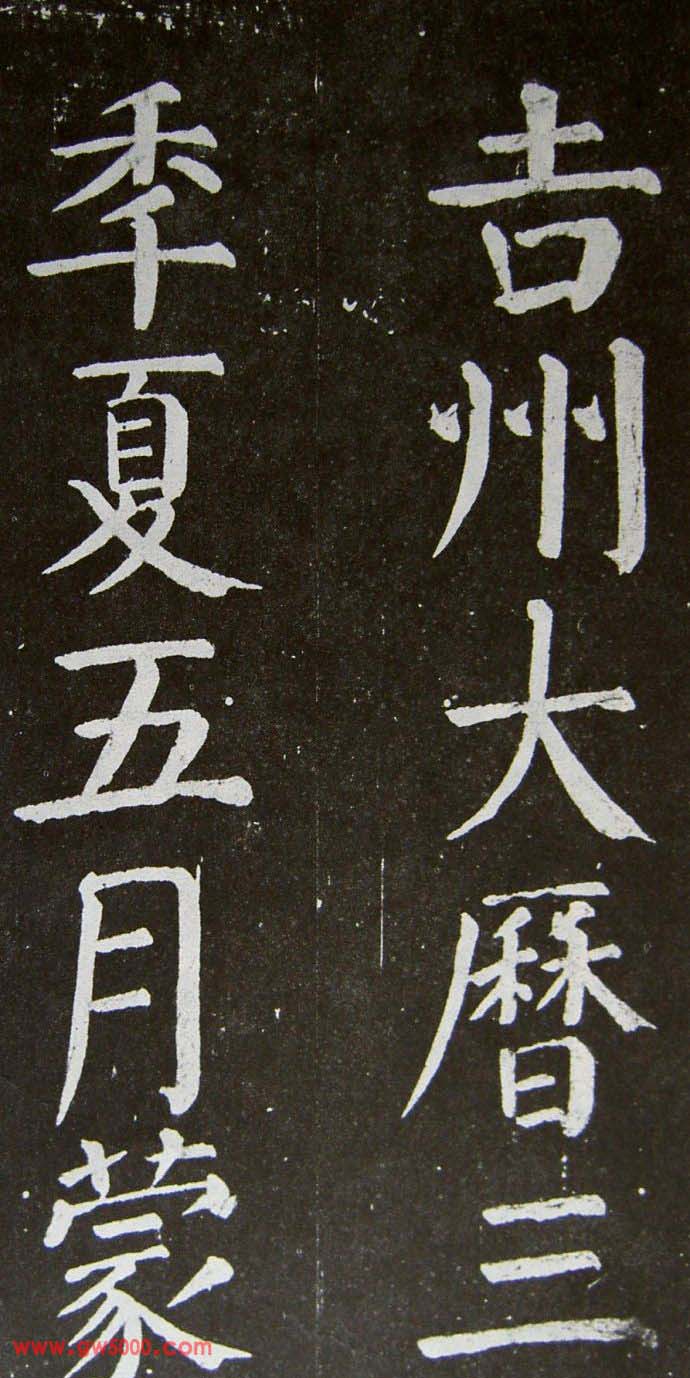 吉州大曆三
秊夏五月蒙
www.gw5000.com